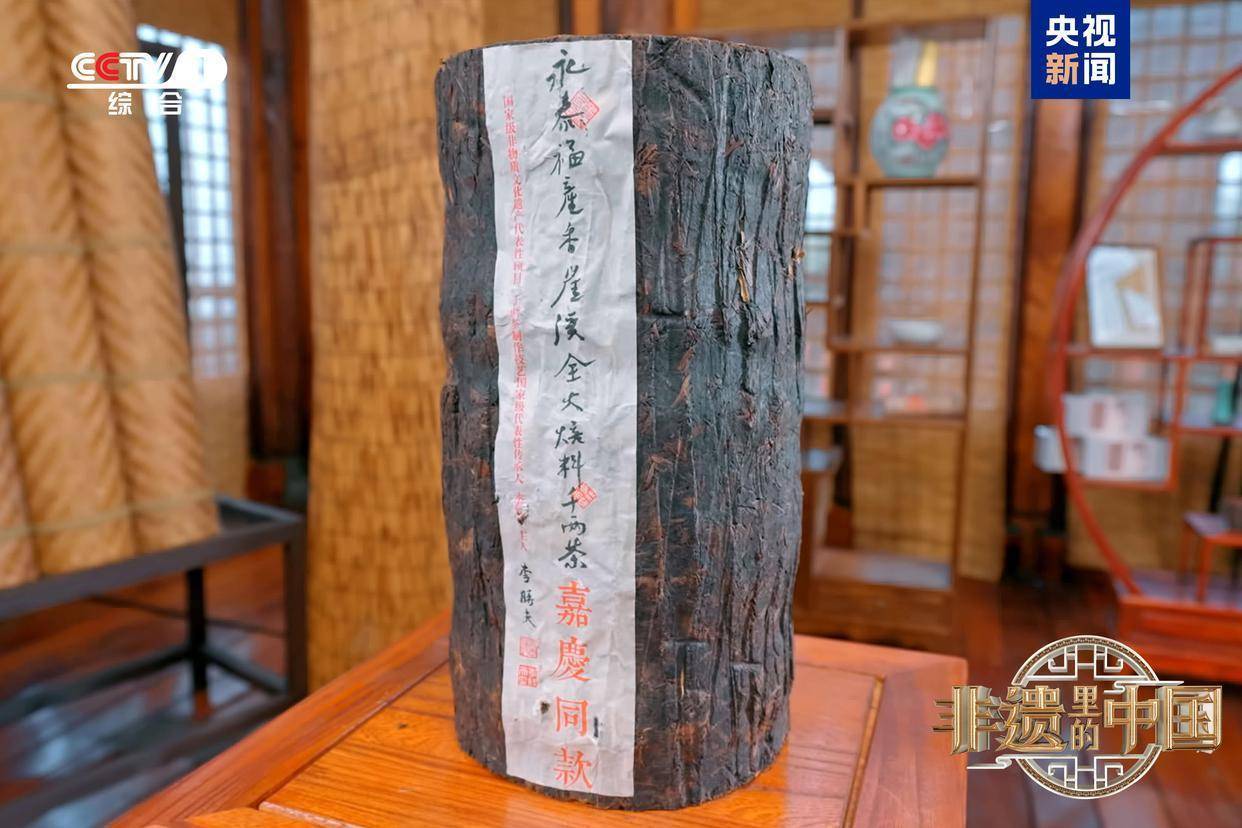 CCTV 1
综合
央视
新闻
永泰福產香崖溪全火焙料千两茶
嘉慶同款
国家级非物质文化遗产代表性项目 千两茶制作技艺国家级代表性传承人
李勝夫
非遗里的中国